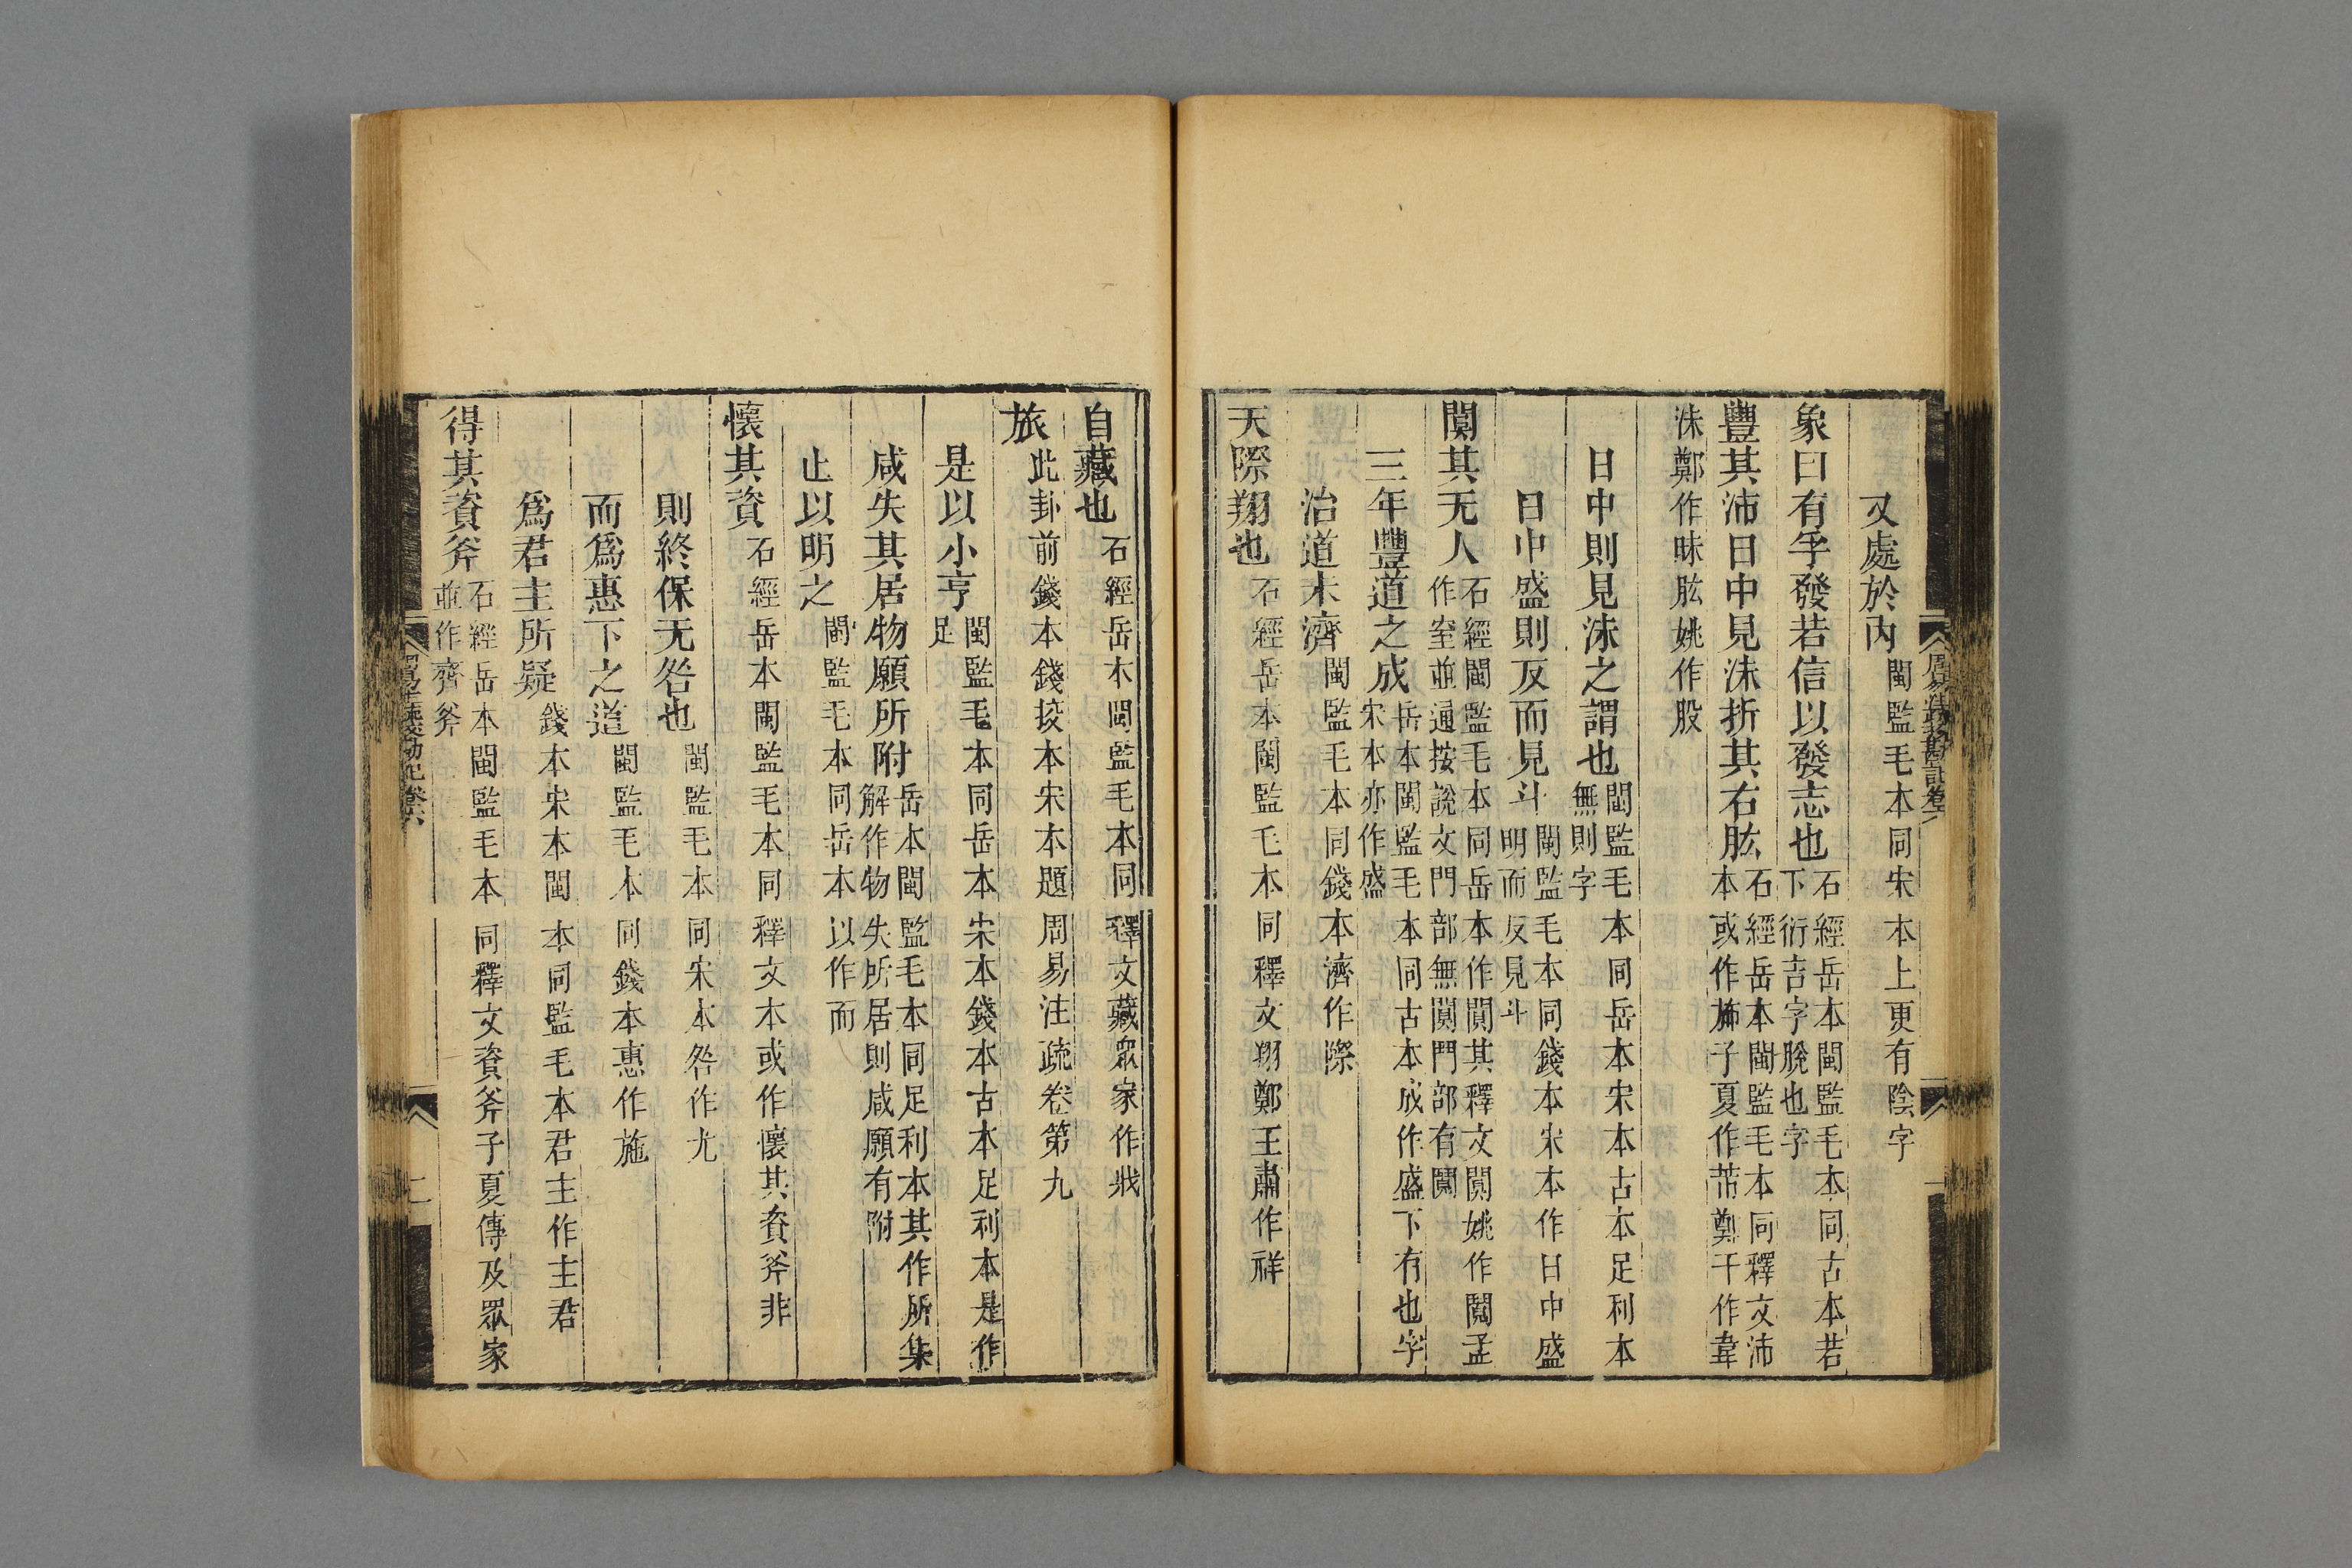 又處於內閩監毛本同宋本上更有陰字
象曰有孚發若信以發志也石經岳本閩監毛本同古本若
下衍吉字脫也字
豐其沛日中見沬折其右肱石經岳本閩監毛本同釋文沛
本或作旆子夏作芾鄭干作韋
沬鄭作昧肱姚作股
日中則見沬之謂也閩監毛本同岳本宋本古本足利本
無則字
日中盛則反而見斗閩監毛本同錢本宋本作日中盛
明而反見斗
闃其无人石經閩監毛本同岳本作閴其釋文閴姚作䦧孟
作窒並通按說文門部無闃鬥部有鬩
三年豐道之成岳本閩監毛本同古本成作盛下有也字
宋本亦作盛
治道未濟閩監毛本同錢本濟作際
天際翔也石經岳本閩監毛本同釋文翔鄭王肅作祥
自藏也石經岳本閩監毛本同釋文藏眾家作戕
旅此卦前錢本錢挍本宋本題周易注疏卷第九
是以小亨閩監毛本同岳本宋本錢本古本足利本是作
足
咸失其居物願所附岳本閩監毛本同足利本其作所集
解作物失所居則咸願有附
止以明之閩監毛本同岳本以作而
懷其資石經岳本閩監毛本同釋文本或作懷其資斧非
則終保无咎也閩監毛本同宋本咎作尤
而爲惠下之道閩監毛本同錢本惠作施
爲君主所疑錢本宋本閩本同監毛本君主作主君
得其資斧石經岳本閩監毛本同釋文資斧子夏傳及眾家
並作齊斧
二